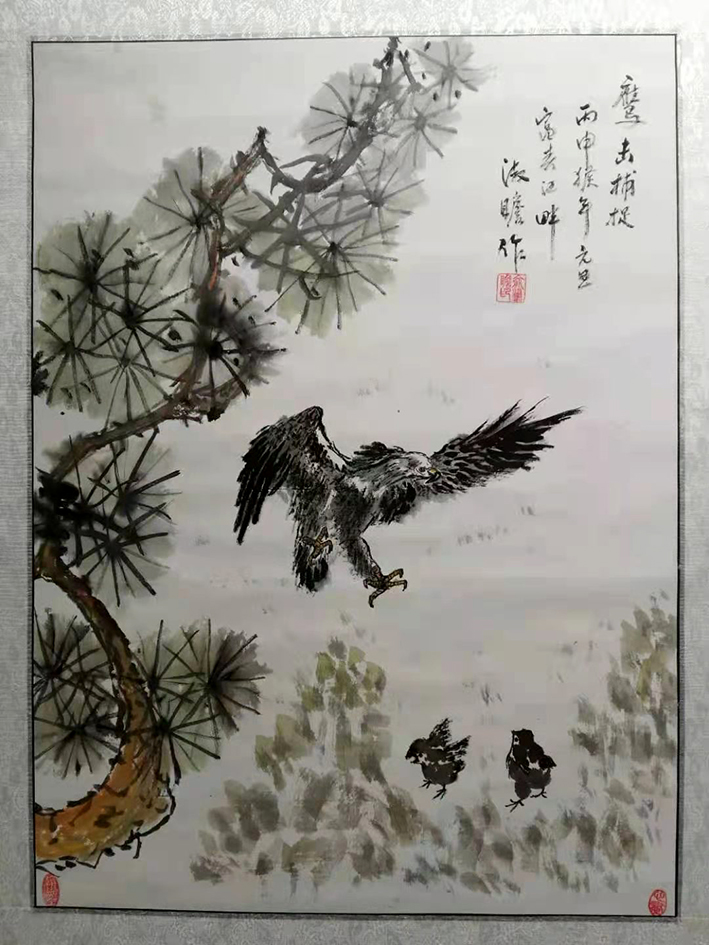 鹰击捕捉
丙申猴年元旦
富春江畔
淑瞻作